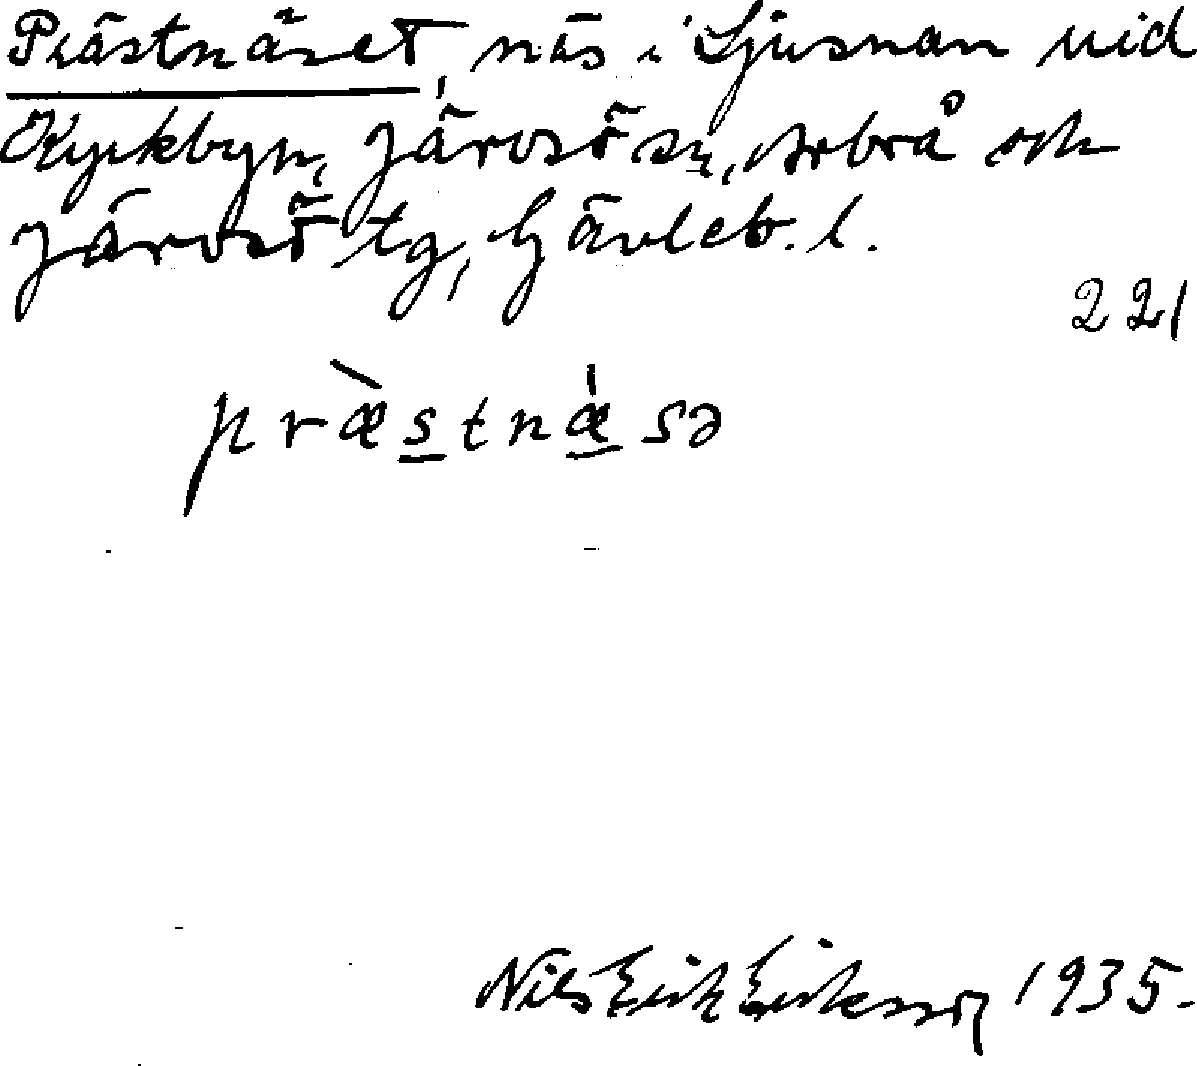 Prästnäset, näs i Ljusnan vid
Kyrkbyn, Järvsö sn, Arbrå och
Järvsö tg, Gävleb. l.
221
præ̀s̲tnǽ̲sə
Nils Erik Eriksson 1935.